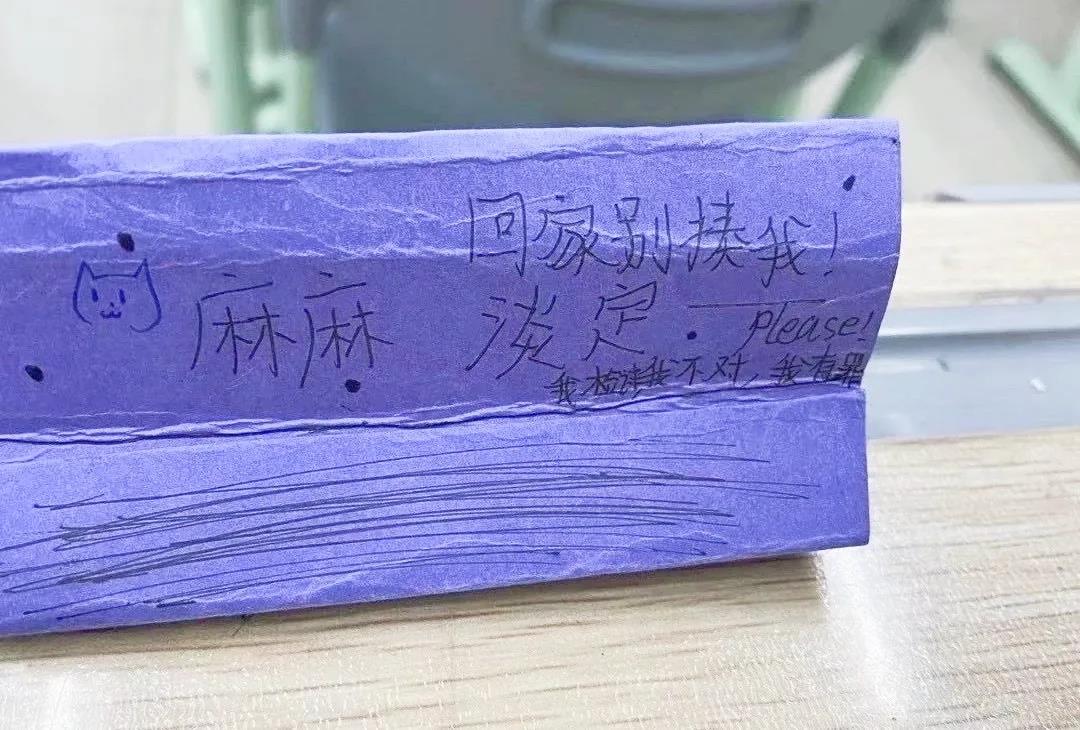 回家别揍我!
麻麻 淡定
please!
我检讨我不对,我有罪